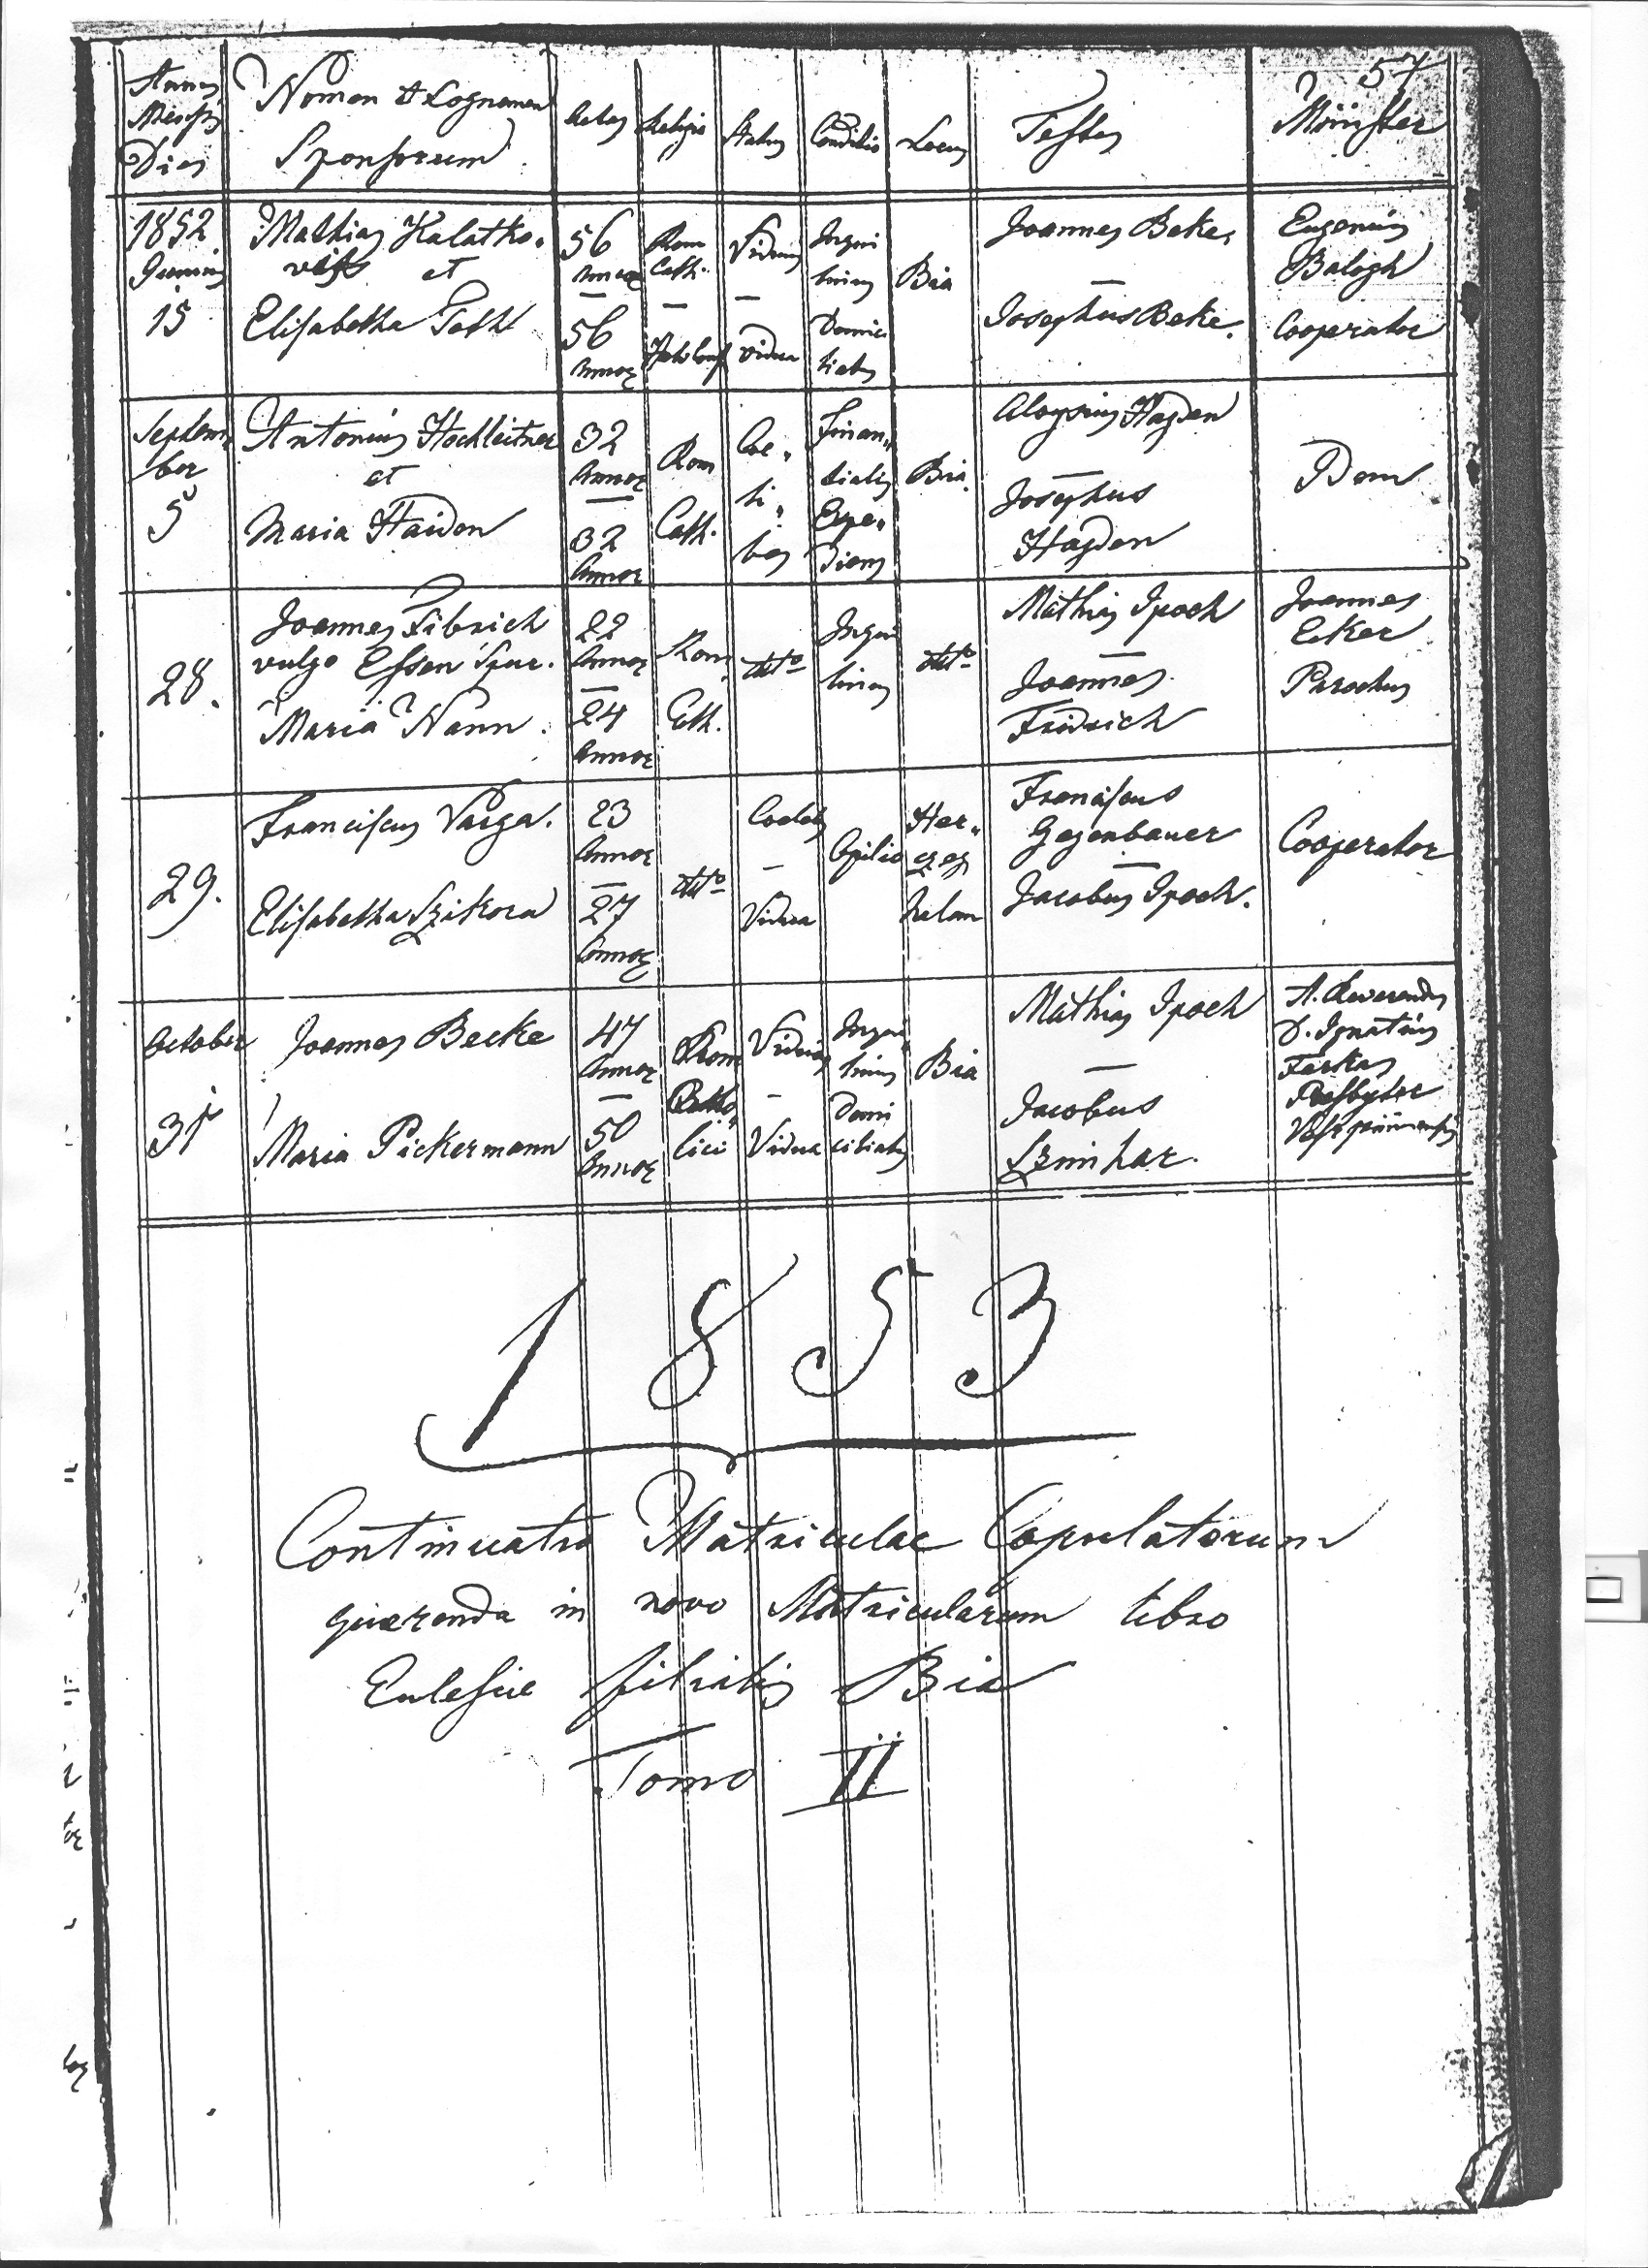 57
Annus
Mensis
Dies
Nomen et Cognomen
Sponsorum
Aetas
Religio
Status
Conditio
Locus
Testes
Minister
1852
Junius
15
Mathias Kalatko-
vits et
Elisabetha Toth
56
annor
—
56
annor
Rom
Cath.
—
Viduus
—
Vidua
Inqui
linus
Domici
liatus
Bia
Joannes Beke,
—
Josephus Beke.
Eugenius
Balogh
Cooperator
Septem-
ber
5
Antonius Hochleitner
et
Maria Haiden
32
Annor
—
32
Annor
Rom
Cath.
Coe„
li„
bes
Finan„
tialis
Expe„
diens
Bia.
Aloysius Hayden
—
Josephus
Hayden
Idem
28.
Joannes Fibrich
vulgo Essen
Maria Nann.
22
Annor
—
24
Annor
Rom.
Cath.
dtto
Inqui
linus
dtto
Mathias Ipoch
—
Joannes
Fridrich
Joannes
Ecker
Parochus
29.
Franciscus Varga.
Elisabetha Szikora
23
Annor
—
27
Annor
dtto
Coelebs
—
Vidua
Opilio
Her„
czeg
halom
Franciscus
Gegenbauer
—
Jacobus Ipoch.
Cooperator
October
31
Joannes Becke
Maria Pickermann
47
Annor
—
50
Annor
Rom
Catho„
lici
Viduus
-
Vidua
Inqui
linus
Domi
ciliatus
Bia
Mathias Ipoch
—
Jacobus
Szmihar.
A. Reverendus
D. Ignatius
Farkas
Presbyter
1853
Continuatio Matriculae Copulatorum
quaerenda in novo Matricularum libro
Eclesiae filialis Bia
Tomo II